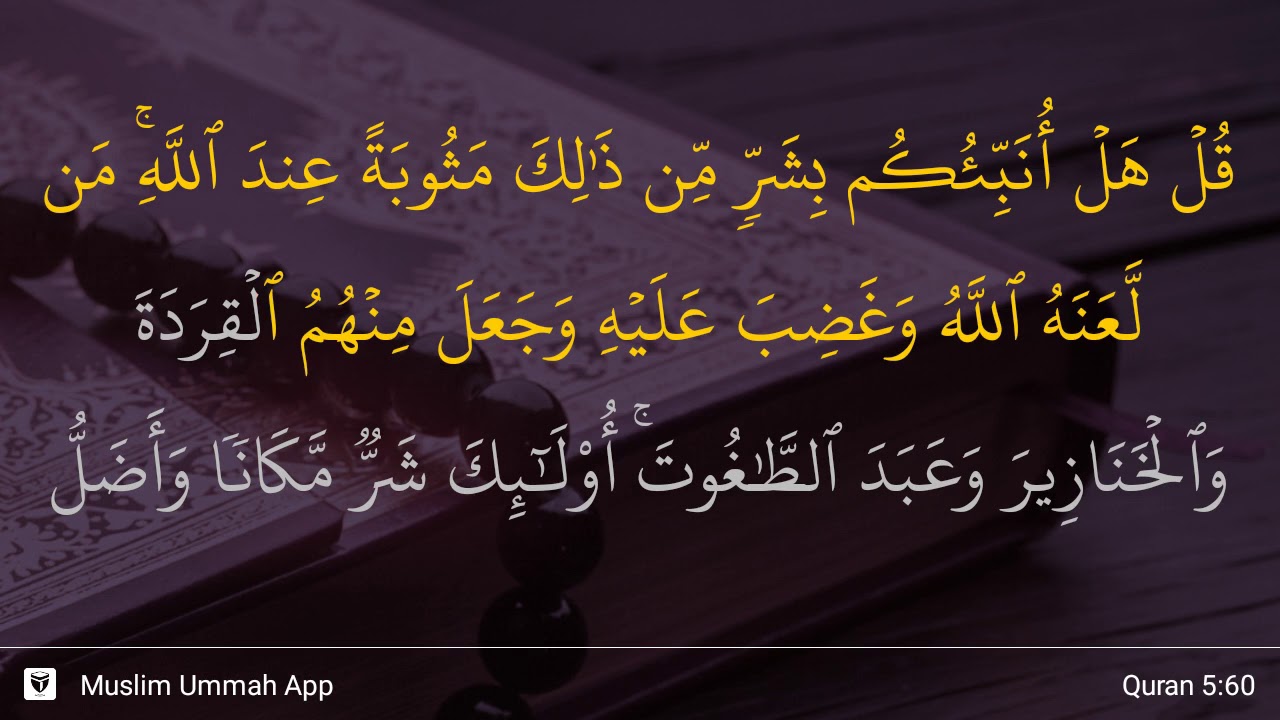 قُلۡ هَلۡ أُنَبِّئُكُم بِشَرّٖ مِّن ذَٰلِكَ مَثُوبَةً عِندَ ٱللَّهِۚ مَن
لَّعَنَهُ ٱللَّهُ وَغَضِبَ عَلَيۡهِ وَجَعَلَ مِنۡهُمُ ٱلۡقِرَدَةَ
وَٱلۡخَنَازِيرَ وَعَبَدَ ٱلطَّٰغُوتَۚ أُوْلَـٰٓئِكَ شَرّٞ مَّكَانٗا وَأَضَلُّ
Muslim Ummah App
Quran 5:60